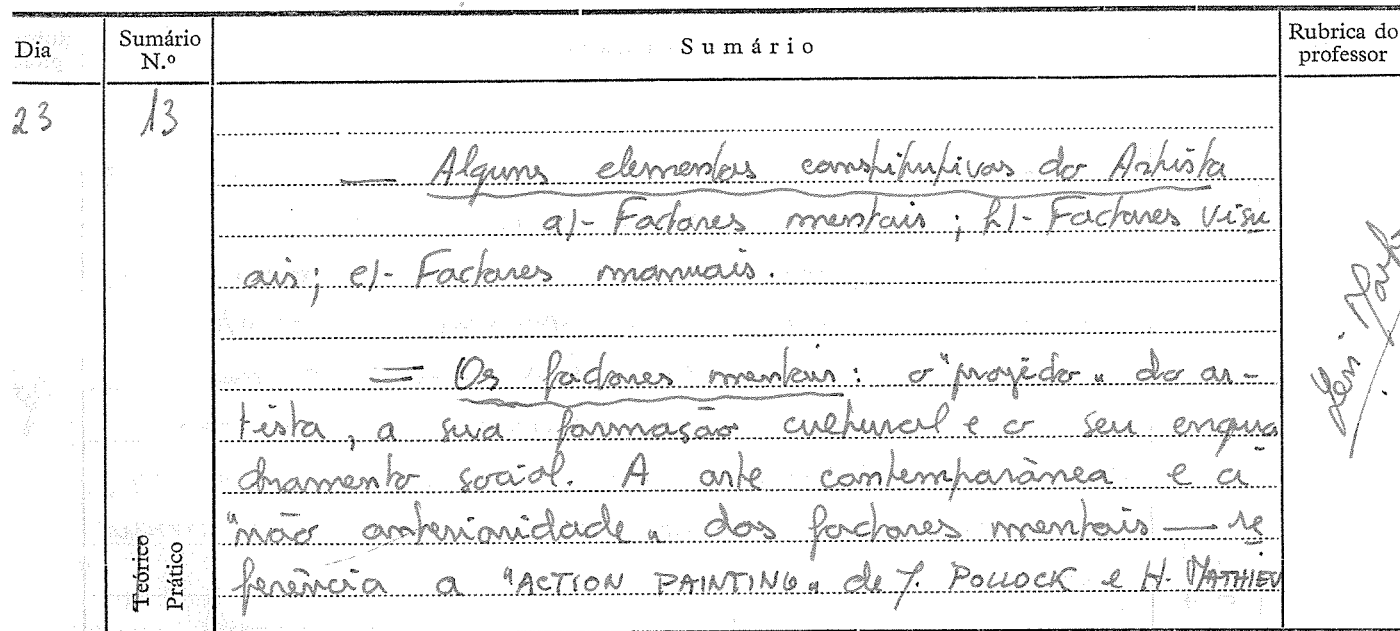 Dia
Sumário N.º
Sumário
Rubrica do professor
23
13
— Alguns elementos constitutivos do Artista
a)- Factores mentais; b)- Factores visu
ais; c)- Factores manuais.
= Os factores mentais: o "projécto" do ar-
tista, a sua formação cultural e o seu enqua
dramento social. A arte contemporânea e a
"não anterioridade" dos factores mentais — re
ferência a "ACTION PAINTING" de J. POLLOCK e H. MATHIEU
Teórico
Prático